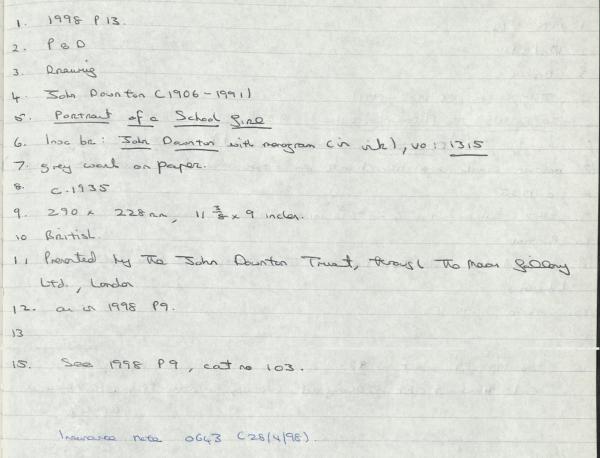 1. 1998 P 13.
2. P & D
3. Drawing
4. John Downton (1906-1991)
5. Portrait of a School Girl
6. Insc br: John Downton with monogram (in ink), vo: 1315
7. grey wash on paper.
8. c.1935
9. 290 x 228mm, 11 3/8 x 9 inches.
10 British.
11 Presented by the John Downton Trust, through the Maas Gallery
Ltd., London
12. as in 1998 P9.
13
15. See 1998 P9, cat no 103.
Insurance note 0643 (28/4/98).